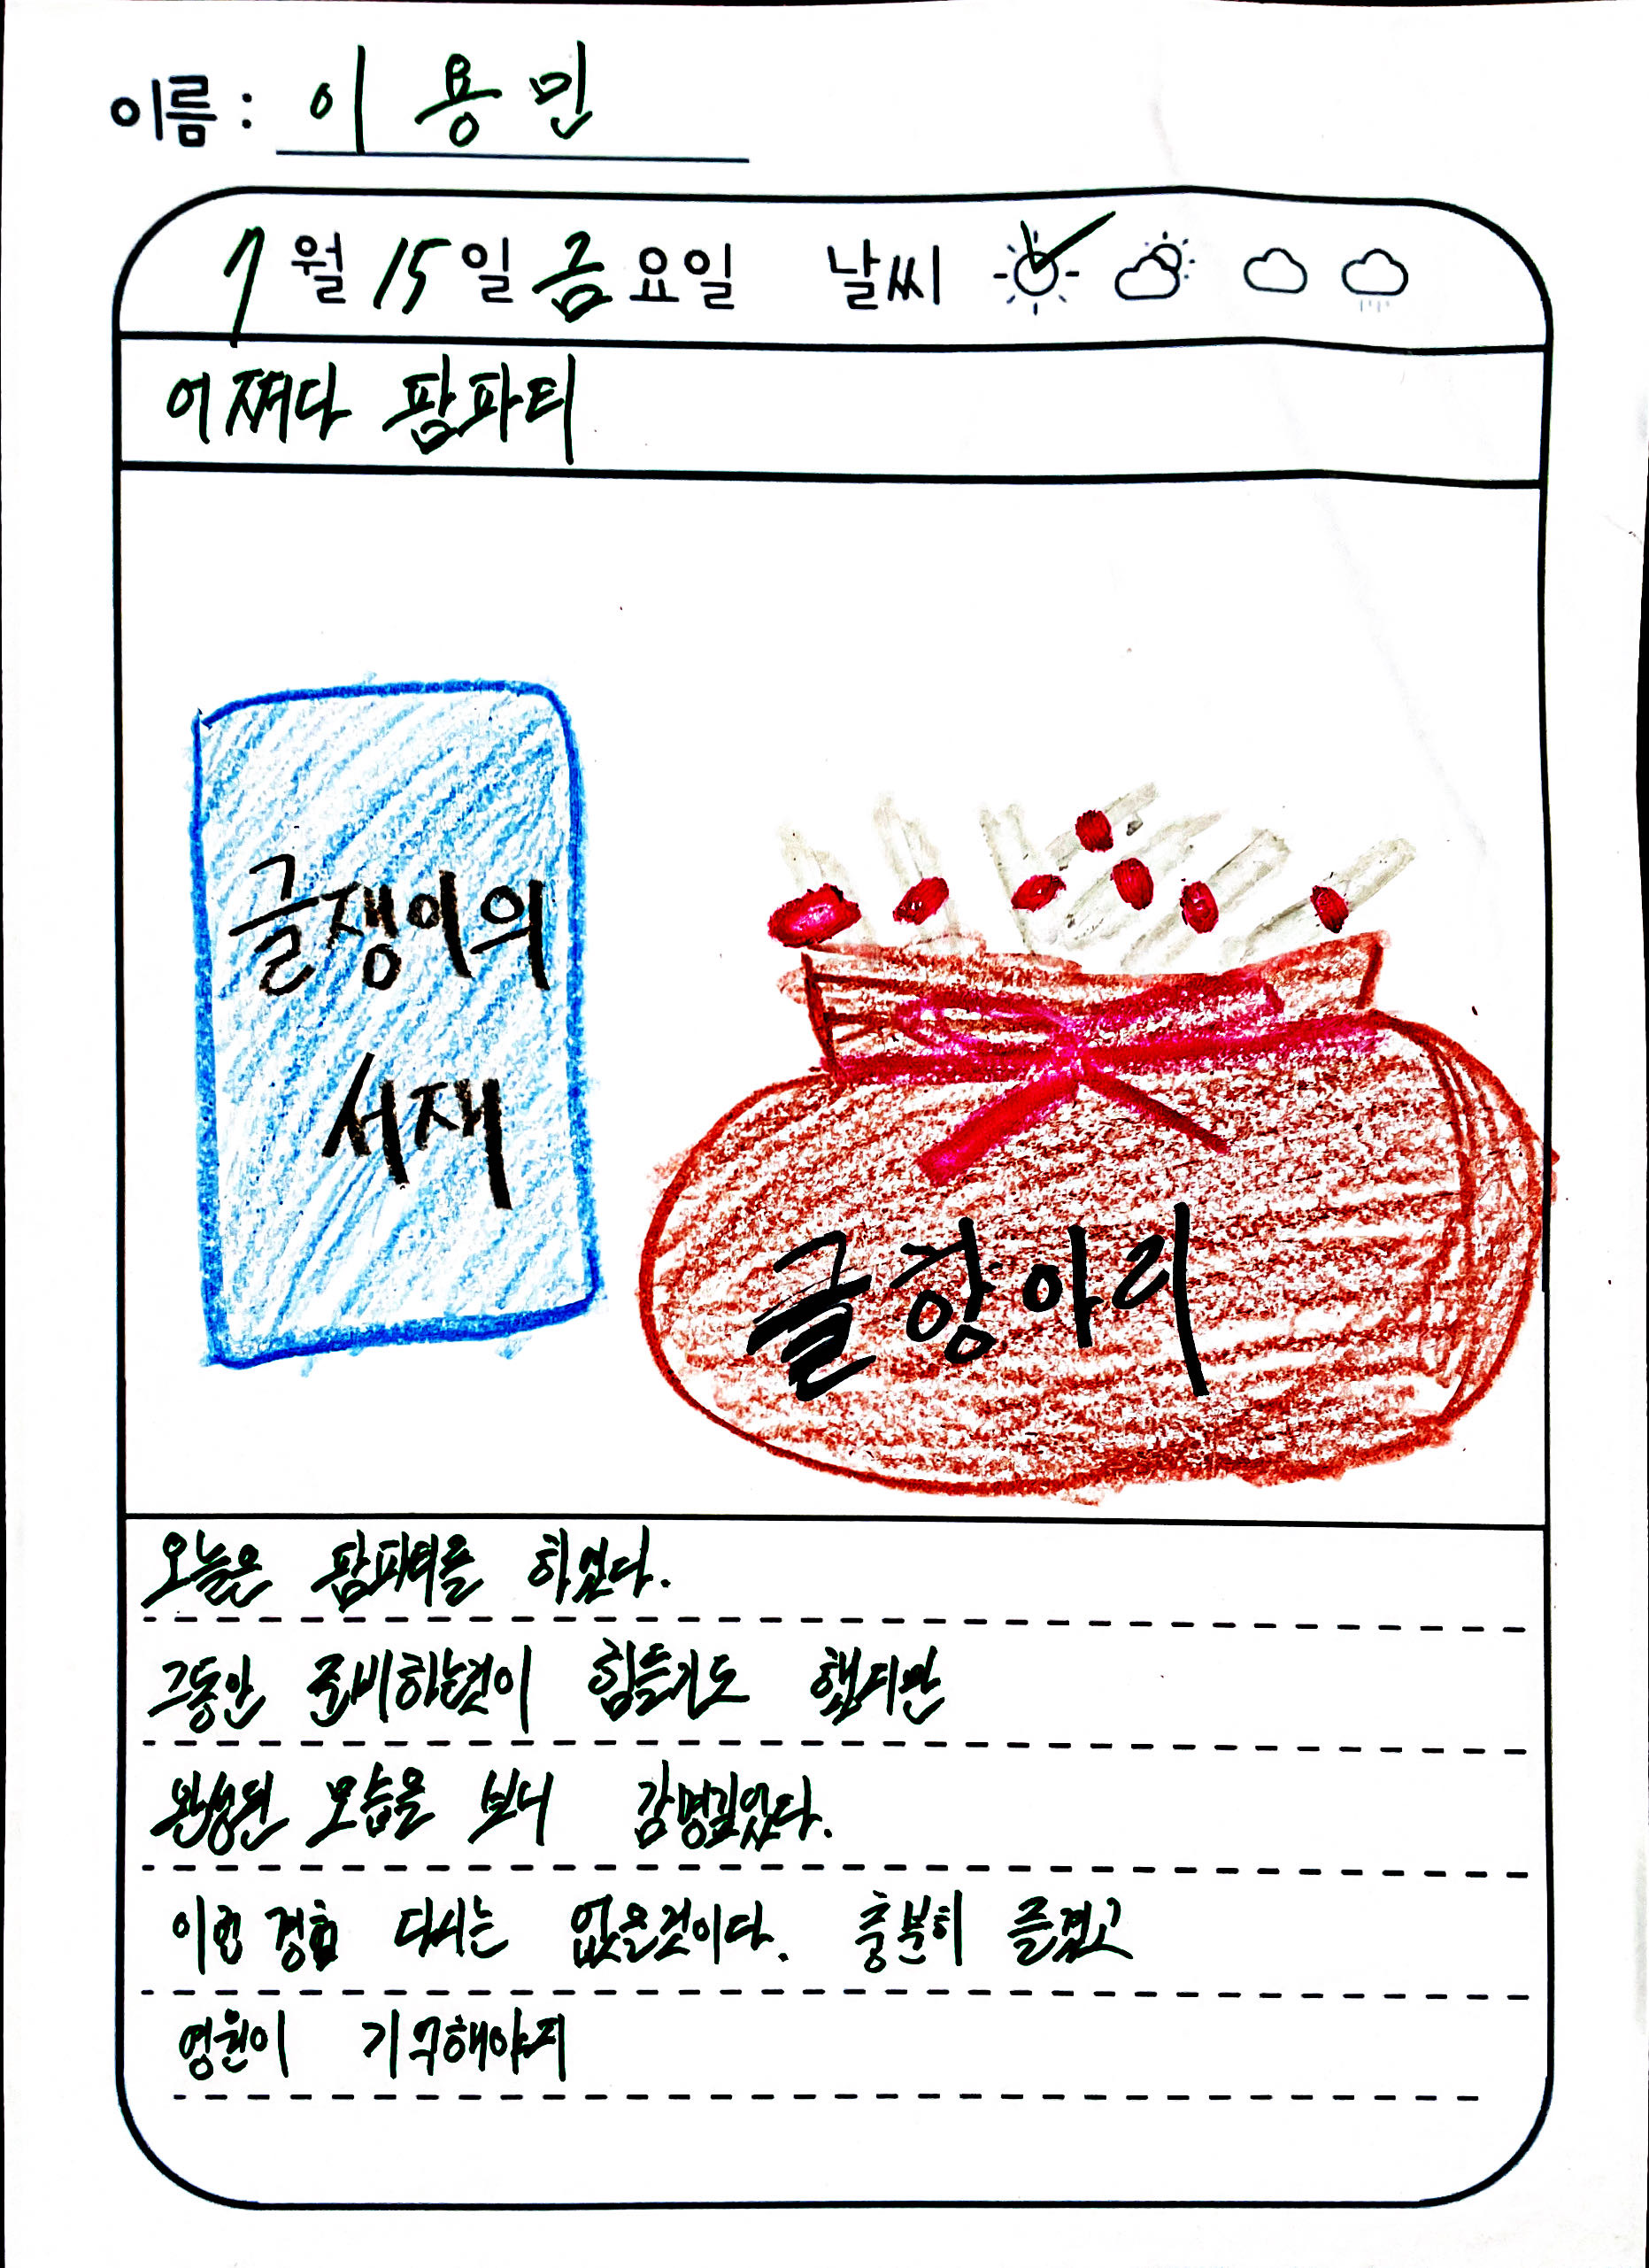 이름 : 이용민
7월 15일 금요일 날씨
어쩌다 팜파티
글쟁이의
서재
글항아리
오늘은 팜파티를 하였다.
그동안 준비하는것이 힘들기도 했지만
완성된 모습을 보니 감명깊었다.
이런 경험 다시는 없을것이다. 충분히 즐겼고
영원이 기억해야지